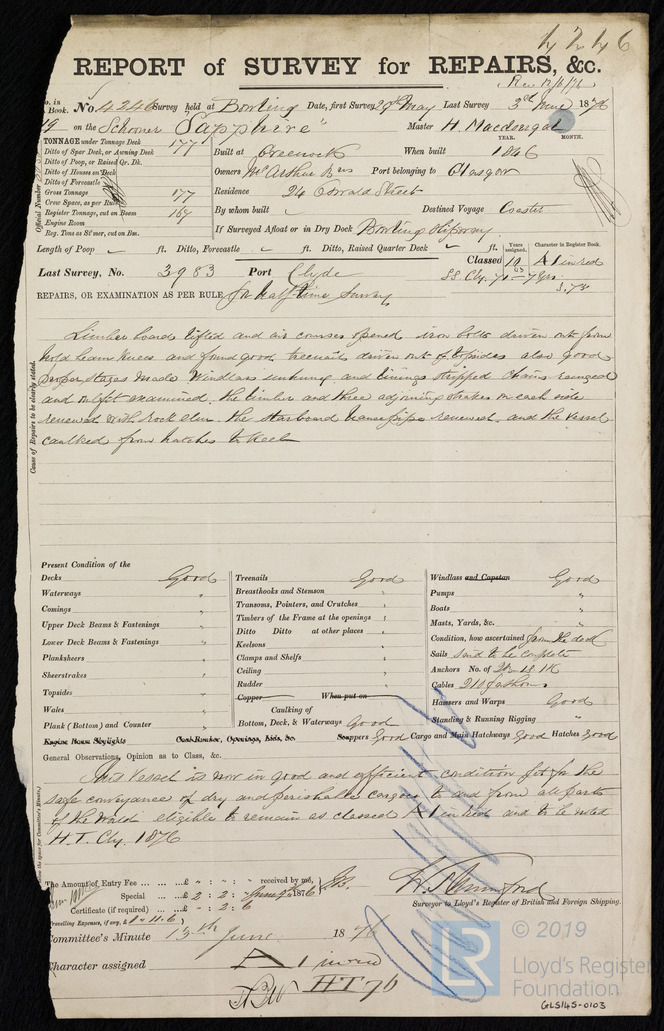 4246
REPORT of SURVEY for REPAIRS, &c.
Rec 12/6/76
No. in Book. No. 4246 Survey held at Bowling Date, first Survey 29th May Last Survey 3rd June 1876
on the Schooner "Sapphire" Master H. Macdougal
TONNAGE under Tonnage Deck 177
YEAR. MONTH.
Ditto of Spar Deck, or Awning Deck
Built at Greenock When built 1846
Ditto of Poop, or Raised Qr. Dk.
Ditto of Houses on Deck
Owners McArthur Bros Port belonging to Glasgow
Ditto of Forecastle
Gross Tonnage 177
Residence 24 Oswald Street
Crew Space, as per Rule
Register Tonnage, cut on Beam 167
By whom built Destined Voyage Coaster
Engine Room
Reg. Tons as St'mer, cut on Bm.
If Surveyed Afloat or in Dry Dock Bowling Slipway
Official Number
Length of Poop ft. Ditto, Forecastle ft. Ditto, Raised Quarter Deck ft.
Years assigned. Character in Register Book.
Classed 10 A1 in red
Last Survey, No. 3983 Port Clyde
SS Cly. 70 - 7 yrs
3.73
REPAIRS, OR EXAMINATION AS PER RULE for half time Survey
Limber boards lifted and air courses opened iron bolts driven out from
hold beam knees and found good treenails driven out of topsides also good
proper stages made Windlass unhung and linings stripped chains ranged
and examined, the limber and three adjoining strakes on each side
renewed with rock elm. the starboard renewed, and the vessel
caulked from hatches to keel
Cause of Repairs to be clearly stated.
Present Condition of the
Decks Good
Waterways "
Comings "
Upper Deck Beams & Fastenings "
Lower Deck Beams & Fastenings "
Planksheers "
Sheerstrakes "
Topsides "
Wales "
Plank (Bottom) and Counter "
Engine Room Skylights
Treenails Good
Breasthooks and Stemson "
Transoms, Pointers, and Crutches "
Timbers of the Frame at the openings "
Ditto Ditto at other places "
Keelsons "
Clamps and Shelfs "
Ceiling "
Rudder "
Copper When put on
Caulking of
Bottom, Deck, & Waterways Good
Coal Bunker, Openings, Lids, &c.
Windlass and Capstan Good
Pumps "
Boats "
Masts, Yards, &c. "
Condition, how ascertained from the deck
Sails said to be complete
Anchors No. of
Cables 210 fathoms
Hawsers and Warps Good
Standing & Running Rigging "
Scuppers Good Cargo and Main Hatchways Good Hatches Good
General Observations, Opinion as to Class, &c.
This Vessel is now in good and efficient condition fit for the
safe conveyance of dry and perishable cargoes to and from all parts
of the World eligible to remain as classed A1 in red and to be noted
H.T. Cly. 1876
The Amount of Entry Fee £ " : " : " received by me,
Special £ 2 : 2 : "
Certificate (if required) " : 2 : 6
Travelling Expenses, if any, £
Surveyor to Lloyd's Register of British and Foreign Shipping.
Committee's Minute 13th June 1876
Character assigned A 1 in red
HT 76
LR
© 2019
Lloyd's Register
Foundation
GLS145-0103